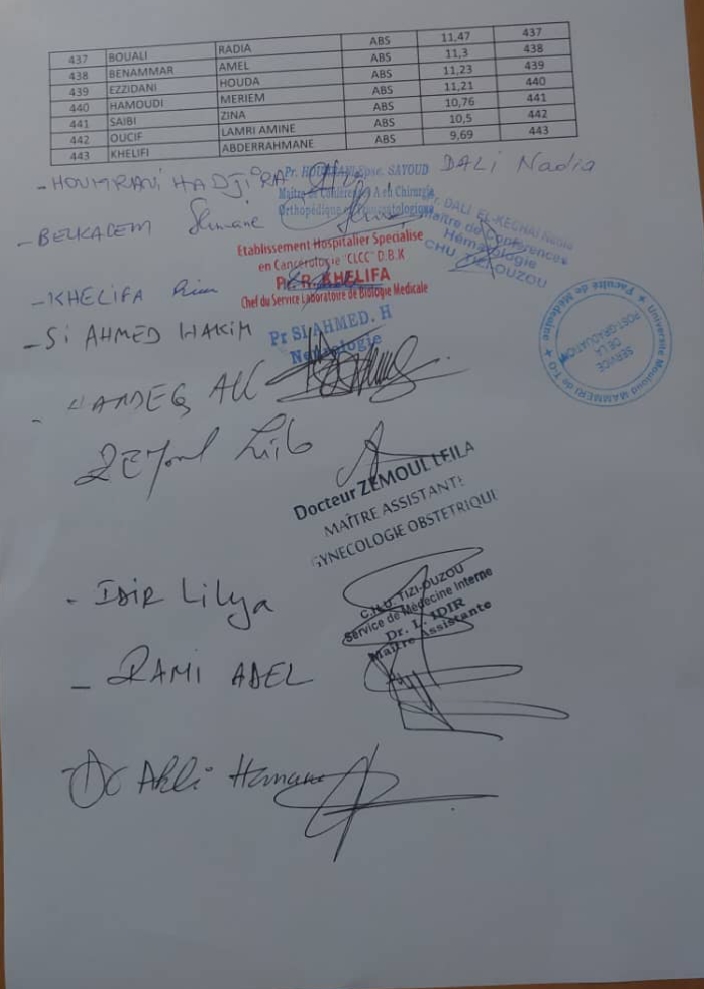 437 BOUALI RADIA ABS 11,47 437
438 BENAMMAR AMEL ABS 11,3 438
439 EZZIDANI HOUDA ABS 11,23 439
440 HAMOUDI MERIEM ABS 11,21 440
441 SAIBI ZINA ABS 10,76 441
442 OUCIF LAMRI AMINE ABS 10,5 442
443 KHELIFI ABDERRAHMANE ABS 9,69 443
- HOUMRANI HADJIRA
Pr. SAYOUD
Maitre de Conférences A en Chirurgie
Orthopédique
DALI Nadia
Dr. DALI EL-KECHAI Nadia
Maitre de Conférences
Hématologie
CHU TIZI-OUZOU
- BELKACEM
Etablissement Hospitalier Spécialisé
en Cancérologie "CLCC" D.B.K
Pr. R. KHELIFA
Chef du Service Laboratoire de Biologie Médicale
- KHELIFA Rim
- Si AHMED HAKIM
Pr SI AHMED. H
Université Mouloud MAMMERI de T-O ★ Faculté de Médecine ★
SERVICE
DE LA
POST-GRADUATION
ZEMoul
Docteur ZEMOUL LEILA
MAÎTRE ASSISTANTE
GYNECOLOGIE OBSTETRIQUE
- IDIR Lilya
C.H.U. TIZI-OUZOU
Service de Médecine Interne
Dr. L. IDIR
Maitre Assistante
- RAMI ADEL
Akli